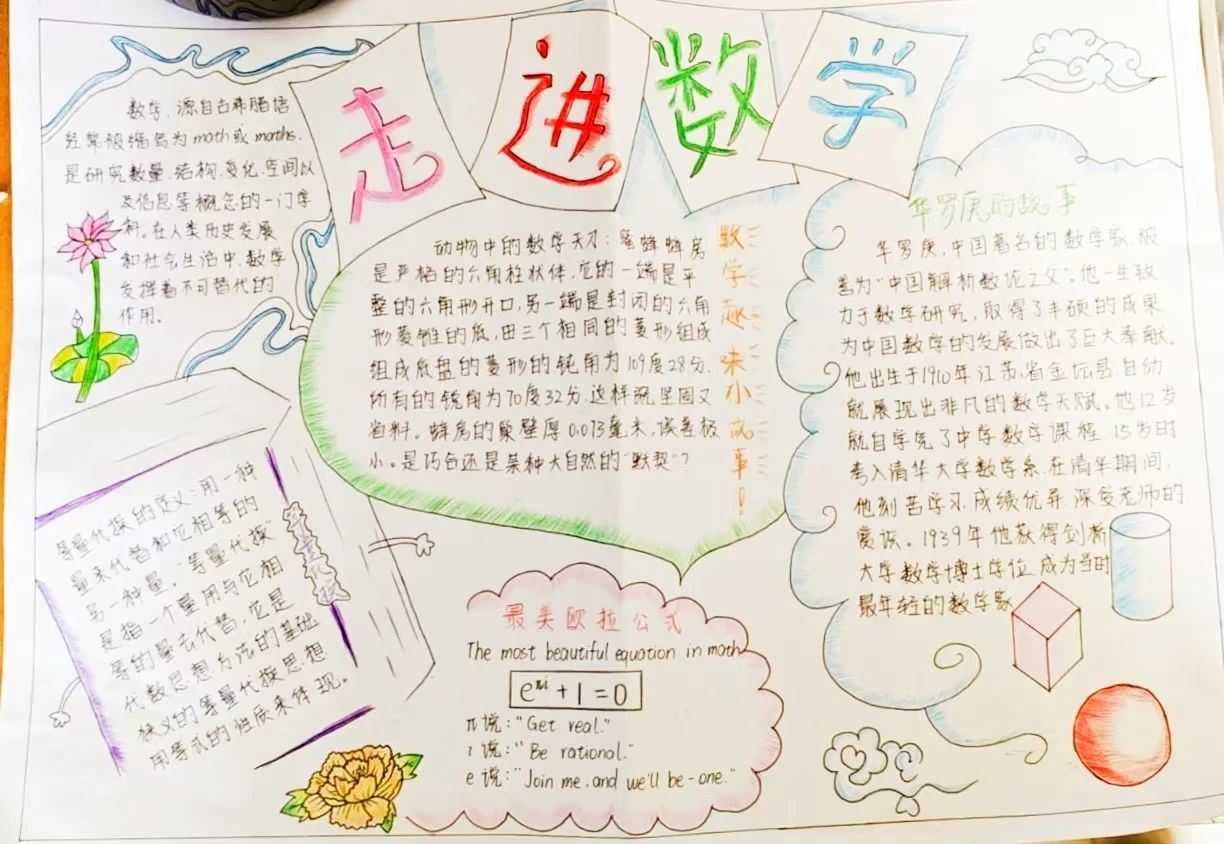 走进数学
数学,源自古希腊语
经常被缩写为math或maths.
是研究数量、结构、变化、空间以
及信息等概念的一门学
科。在人类历史发展
和社会生活中,数学
发挥着不可替代的
作用。
动物中的数学天才:蜜蜂蜂房
是严格的六角柱状体,它的一端是平
整的六角形开口,另一端是封闭的六角
形菱锥的底,由三个相同的菱形组成
组成底盘的菱形的钝角为109度28分,
所有的锐角为70度32分,这样既坚固又
省料。蜂房的巢壁厚0.073毫米,误差极
小。是巧合还是某种大自然的“默契”?
数学趣味小故事!
华罗庚的故事
华罗庚,中国著名的数学家,被
善为“中国解析数论之父”。他一生致
力于数学研究,取得了丰硕的成果
为中国数学的发展做出了巨大奉献.
他出生于1910年江苏省金坛县,自幼
就展现出非凡的数学天赋。他12岁
就自学完了中学数学课程,15岁时
考入清华大学数学系,在清华期间,
他刻苦学习,成绩优异,深受老师的
赏识。1939年他获得剑桥
大学数学博士学位,成为当时
最年轻的数学家
等量代换的定义:用一种
量来代替和它相等的
另一种量,“等量代换”
是指一个量用与它相
等的量去代替,它是
代数思想方法的基础
狭义的等量代换思想
用等式的性质来体现。
等量代换
最美欧拉公式
The most beautiful equation in math
e^πi + 1 = 0
π说:“Get real.”
i说:“Be rational.”
e说:“Join me, and we'll be-one.”